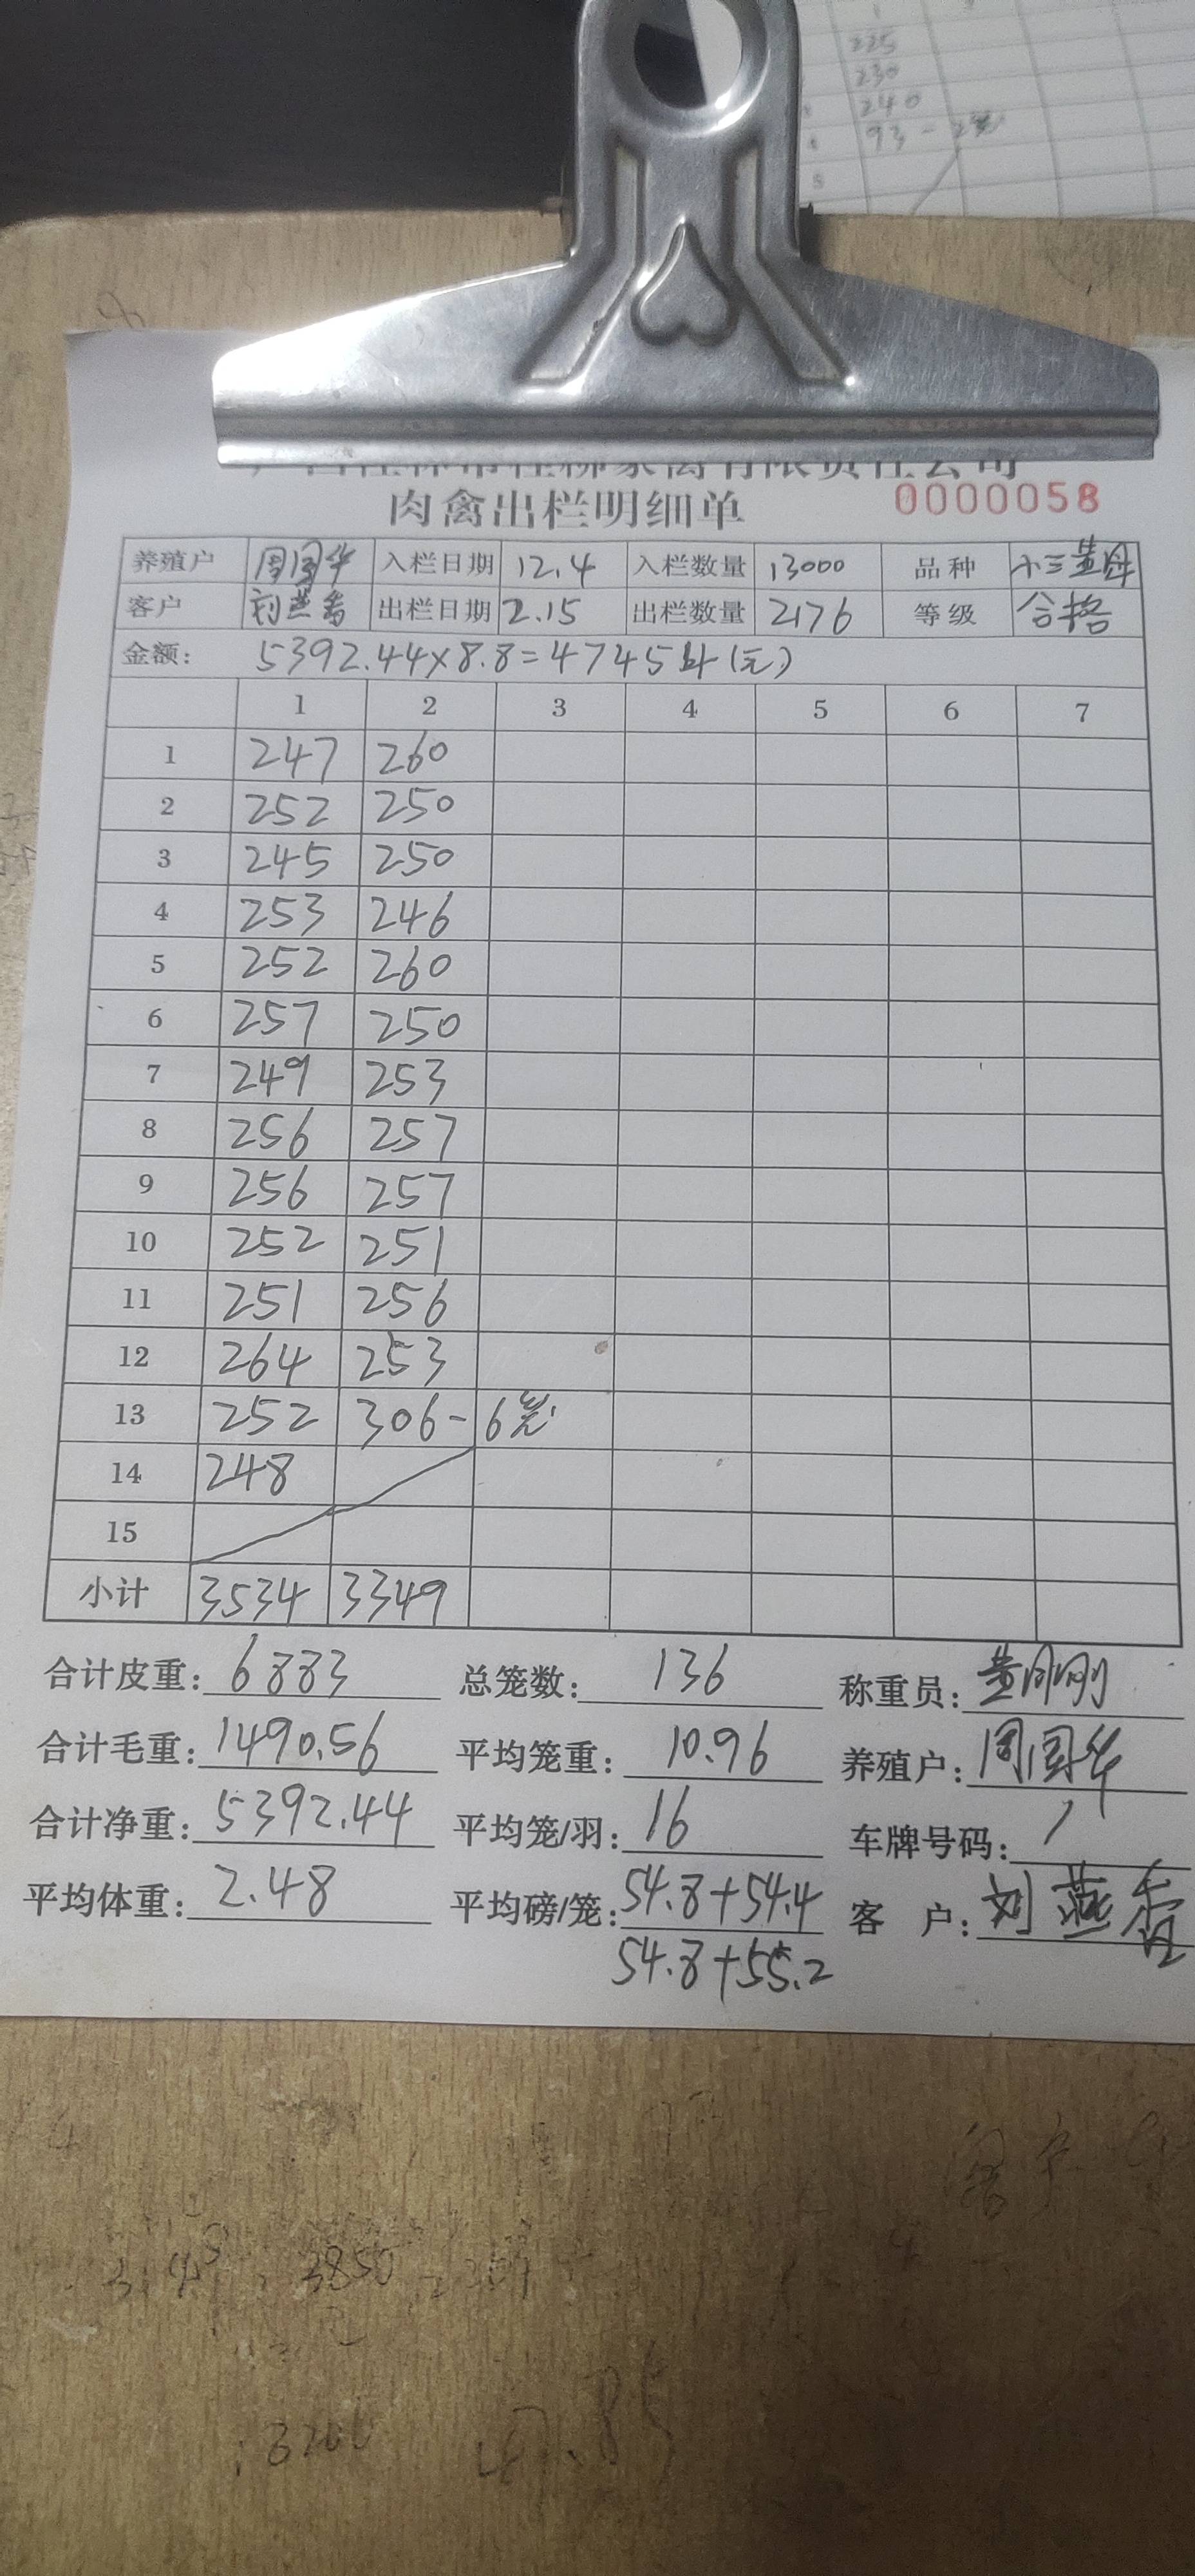 225
230
240
93-2笼
5
肉禽出栏明细单 0000058
养殖户 周国华 入栏日期 12.4 入栏数量 13000 品种 小三黄母
客户 刘燕香 出栏日期 2.15 出栏数量 2176 等级 合格
金额: 5392.44×8.8=47454(元)
1 2 3 4 5 6 7
1 247 260
2 252 250
3 245 250
4 253 246
5 252 260
6 257 250
7 249 253
8 256 257
9 256 257
10 252 251
11 251 256
12 264 253
13 252 306-6笼
14 248
15
小计 3534 3349
合计皮重: 6883 总笼数: 136 称重员: 黄刚刚
合计毛重: 1490.56 平均笼重: 10.96 养殖户: 周国华
合计净重: 5392.44 平均笼/羽: 16 车牌号码: /
平均体重: 2.48 平均磅/笼: 54.8+54.4 客 户: 刘燕香
54.8+55.2
3850